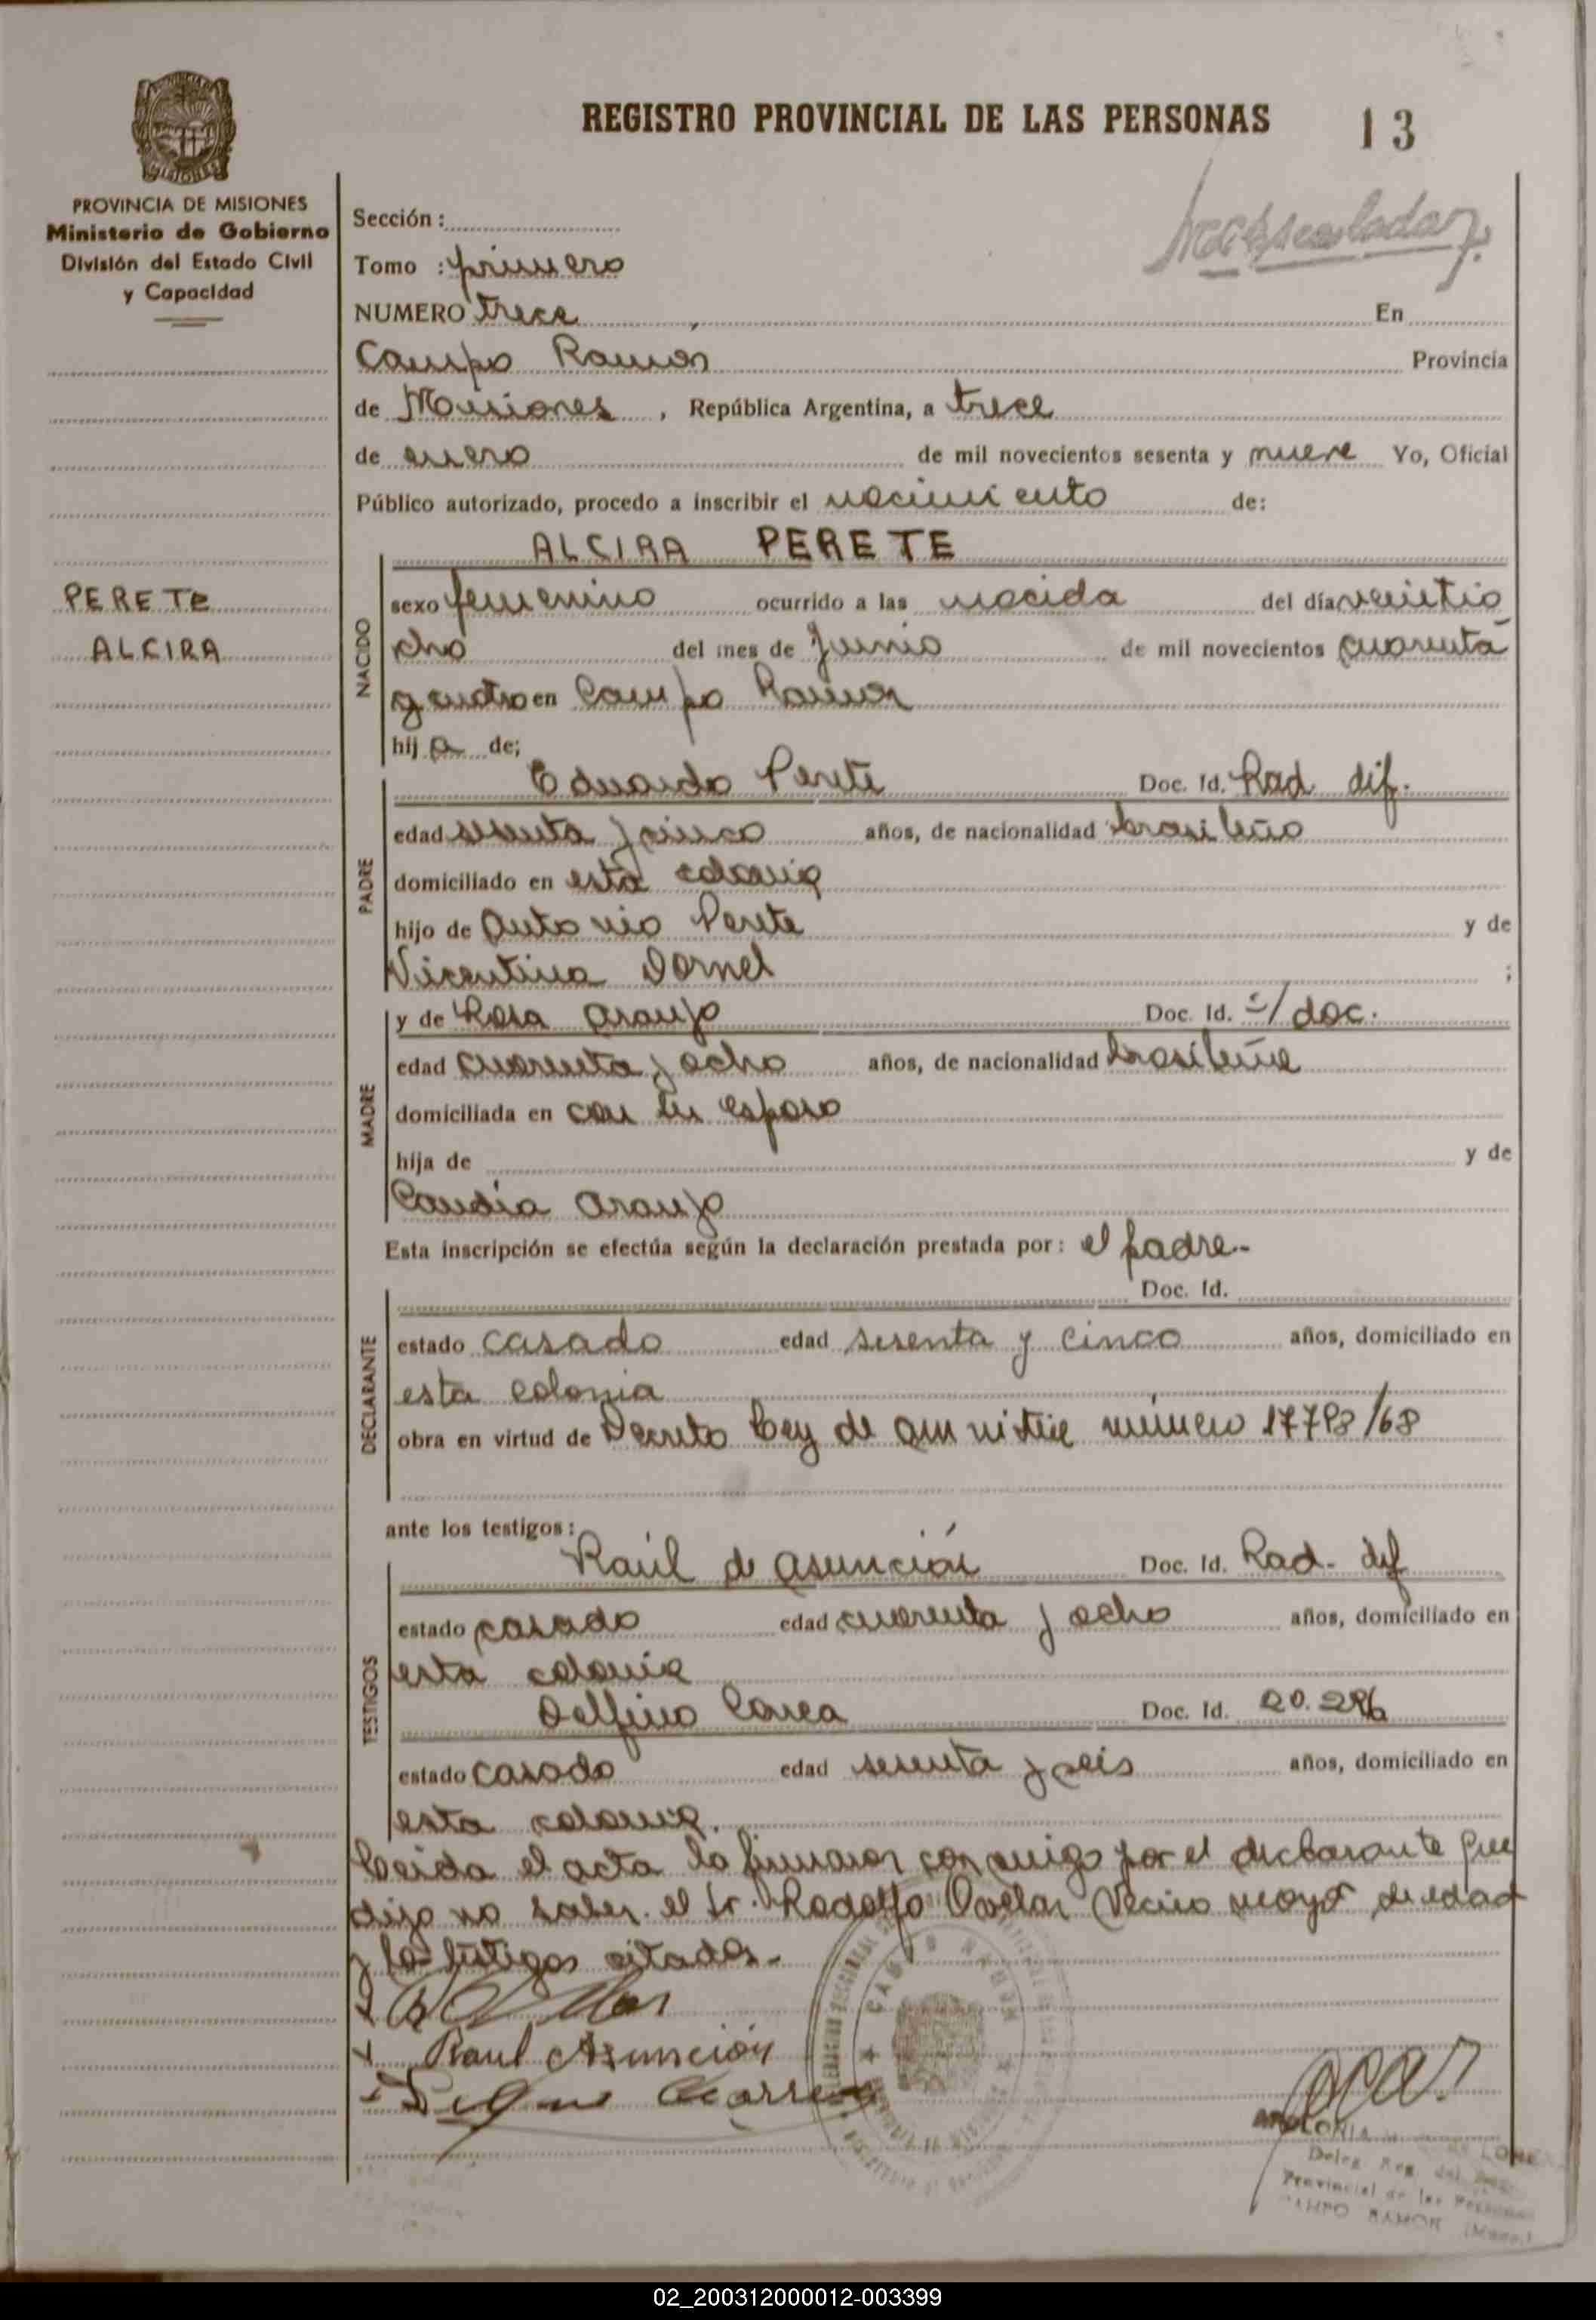 REGISTRO PROVINCIAL DE LAS PERSONAS 13
PROVINCIA DE MISIONES
Ministerio de Gobierno
División del Estado Civil
y Capacidad
Sección :
Tomo : primero
NUMERO trece En
Campo Ramon Provincia
de Misiones , República Argentina, a trece
de enero de mil novecientos sesenta y nueve Yo, Oficial
Público autorizado, procedo a inscribir el nacimiento de:
ALCIRA PERETE
PERETE
ALCIRA
NACIDO
sexo femenino ocurrido a las nacida del día veintio
cho del mes de Junio de mil novecientos cuarenta
y cuatro en Campo Ramon
hij a de;
PADRE
Eduardo Perete Doc. Id. Rad. dif.
edad sesenta y cinco años, de nacionalidad brasileño
domiciliado en esta colonia
hijo de Antonio Perete y de
Vicentina Dornel ;
MADRE
y de Rosa Araujo Doc. Id. s/doc.
edad cuarenta y ocho años, de nacionalidad brasileña
domiciliada en con su esposo
hija de y de
Araujo
Esta inscripción se efectúa según la declaración prestada por: el padre-
DECLARANTE
Doc. Id.
estado casado edad sesenta y cinco años, domiciliado en
esta colonia
obra en virtud de Decreto Ley de número /68
ante los testigos:
TESTIGOS
Raúl de Asunción Doc. Id. Rad. dif
estado casado edad cuarenta y ocho años, domiciliado en
esta colonia
Delfino Correa Doc. Id. 20.
estado casado edad sesenta y seis años, domiciliado en
esta colonia.
Leida el acta la firman conmigo por el declarante que
dijo no saber el Sr. Rodolfo vecino mayor de edad
y los testigos citados.-
Raul Asunción
Deleg. Reg. del
Provincial de las Personas
CAMPO RAMON (Mnes.)
02_200312000012-003399